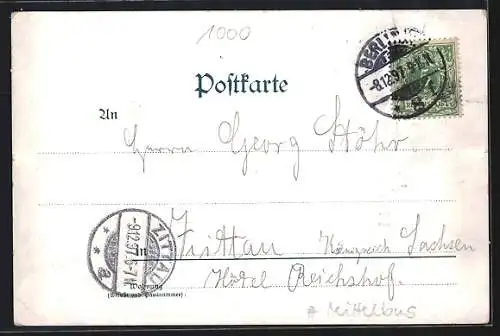 1000
BERLIN
Postkarte
-8.12.97.
An
Herrn Georg Stöhr
Zittau Königreich Sachsen
ZITTAU
-9.12.97.6-7N.
a
In
Hôtel Reichshof.
Wohnung
(Straße und Hausnummer)
# Mittelbus